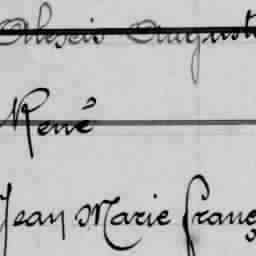 Alexis Auguste
René
Jean Marie Franç